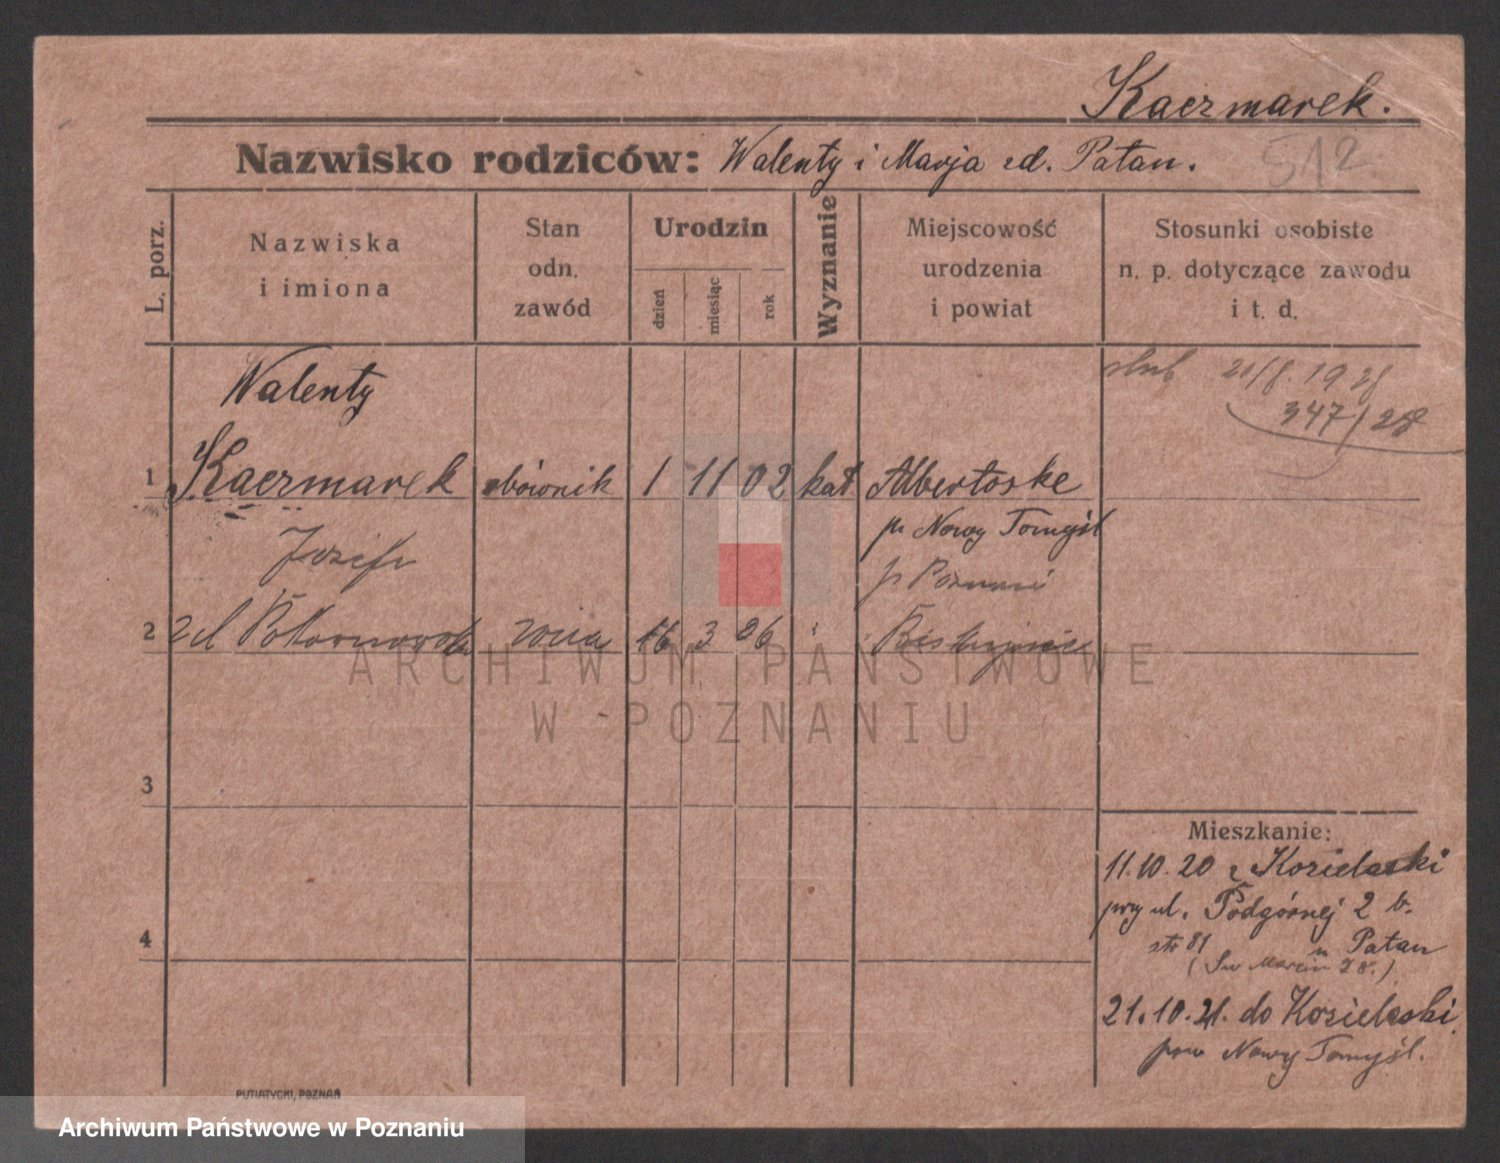 Kaczmarek.
Nazwisko rodziców: Walenty i Marja zd. Patan.
512
L. porz.
Nazwiska
i imiona
Stan
odn.
zawód
Urodzin
dzień
miesiąc
rok
Wyznanie
Miejscowość
urodzenia
i powiat
Stosunki osobiste
n. p. dotyczące zawodu
i t. d.
ślub 21/8. 1928
347/28
Walenty
1 Kaczmarek 1 11 02 kat Albertoske
p. Nowy Tomyśl
Józefa
p. Poznań
2 zd żona 16 3 06
3
4
Mieszkanie:
11.10.20 z Kozielaski
przy ul. Podgórnej 2 b.
str 81 u Patan
(Św Marcin 28.)
21.10.21. do Kozielaski
pow Nowy Tomyśl.
PUTIATYCKI, POZNAŃ
ARCHIWUM PAŃSTWOWE
W POZNANIU
Archiwum Państwowe w Poznaniu